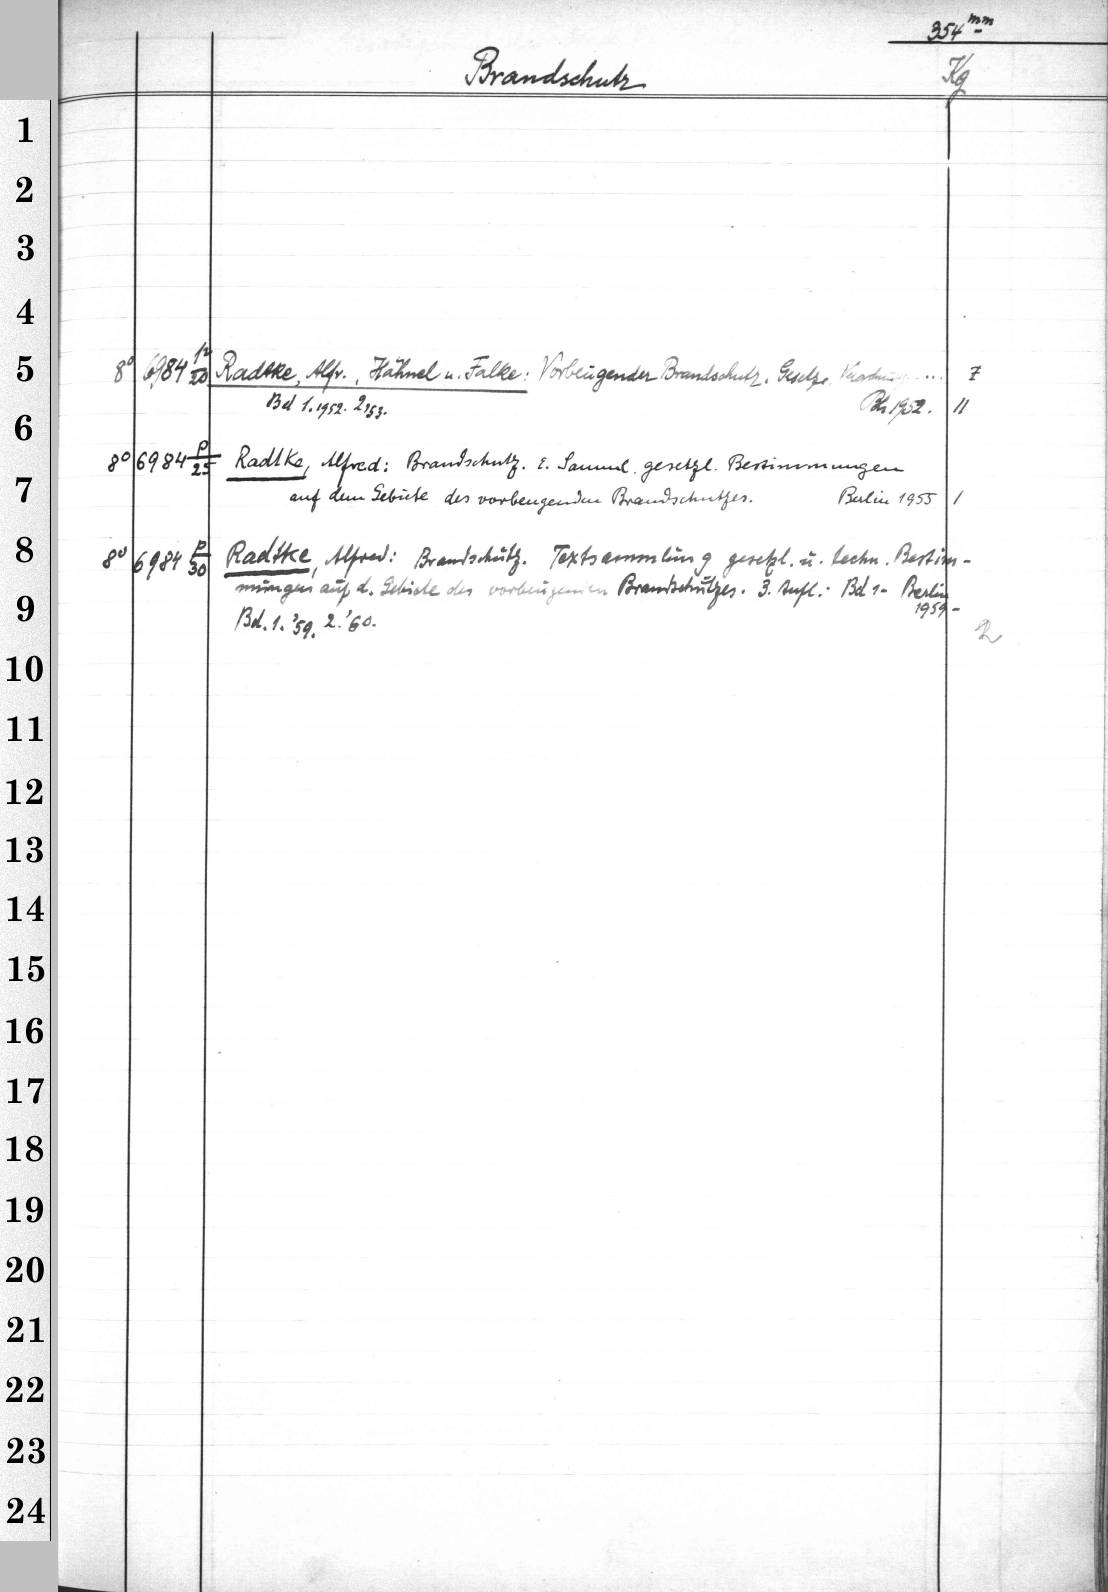 354 mm
Brandschutz
Kg
1
2
3
4
5
8° 6984 p/20 Radtke, Alfr., Hähnel u. Falke: Vorbeugender Brandschutz. Gesetze, ...
Bd 1.1952. 2,53. 1952. II
6
8° 6984 p/25 Radtke, Alfred: Brandschutz. E. Samml. gesetzl. Bestimmungen
7
auf dem Gebiete des vorbeugenden Brandschutzes. Berlin 1955 I
8
8° 6984 p/30 Radtke, Alfred: Brandschutz. Textsammlung gesetzl. u. techn. Bestim-
mungen auf d. Gebiete des vorbeugenden Brandschutzes. 3. Aufl.: Bd 1- Berlin
9
1959-
Bd. 1. '59. 2. '60.
10
11
12
13
14
15
16
17
18
19
20
21
22
23
24